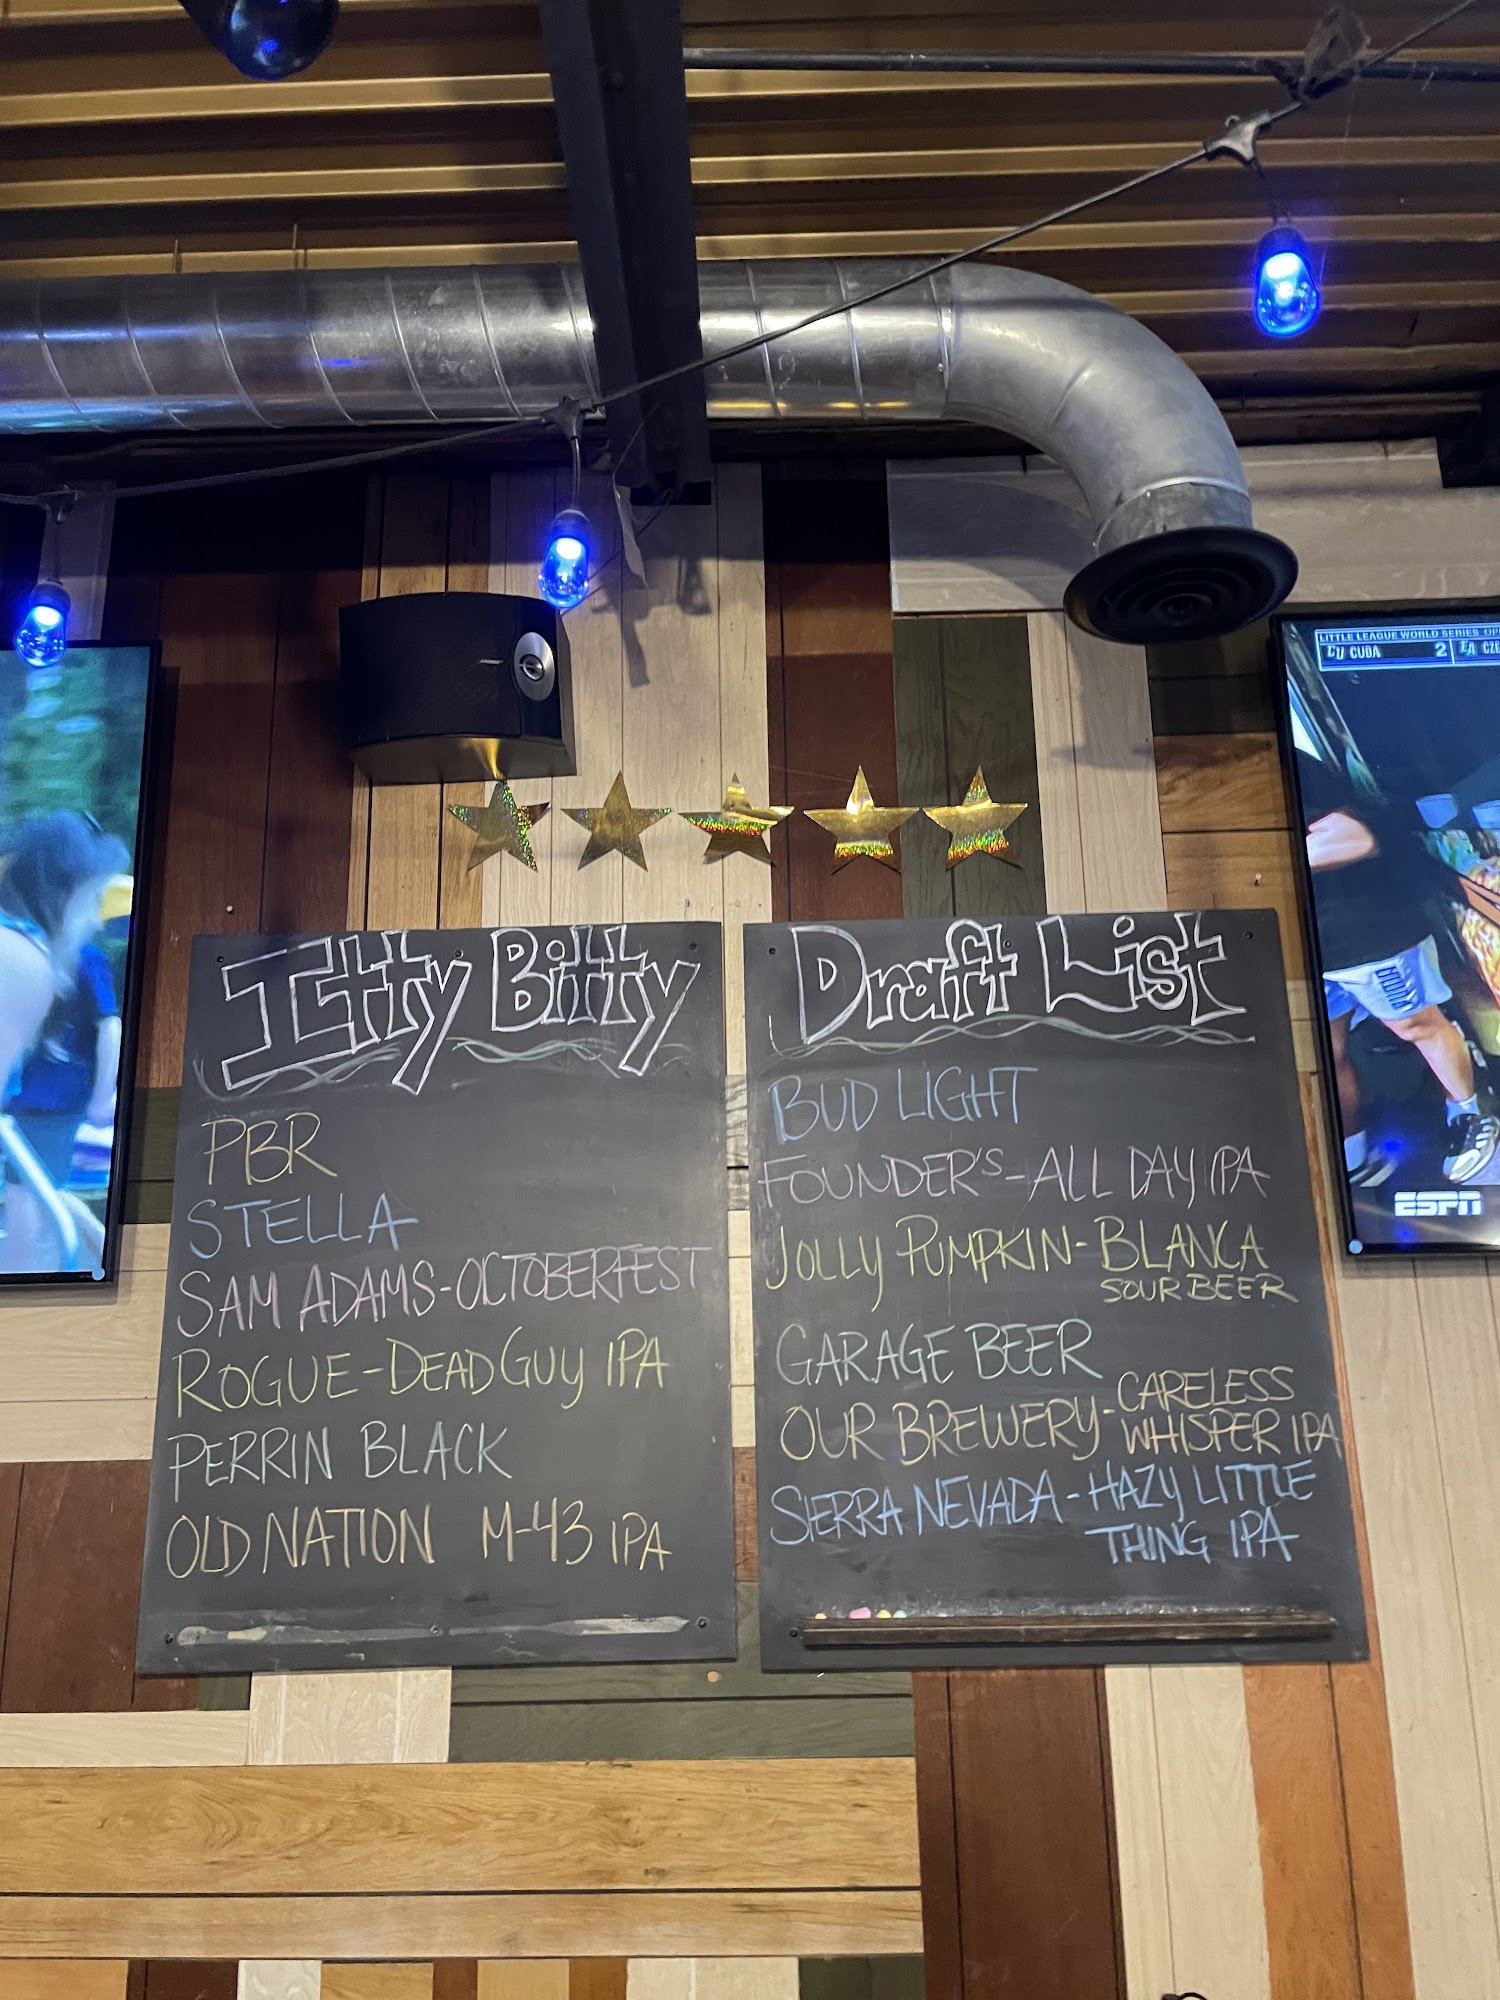 LITTLE LEAGUE WORLD SERIES
CUBA 2
Itty Bitty
PBR
STELLA
SAM ADAMS-OCTOBERFEST
ROGUE-DEAD GUY IPA
PERRIN BLACK
OLD NATION M-43 IPA
Draft List
BUD LIGHT
FOUNDER'S-ALL DAY IPA
JOLLY PUMPKIN-BLANCA
SOUR BEER
GARAGE BEER
OUR BREWERY-CARELESS
WHISPER IPA
SIERRA NEVADA-HAZY LITTLE
THING IPA
ESPN